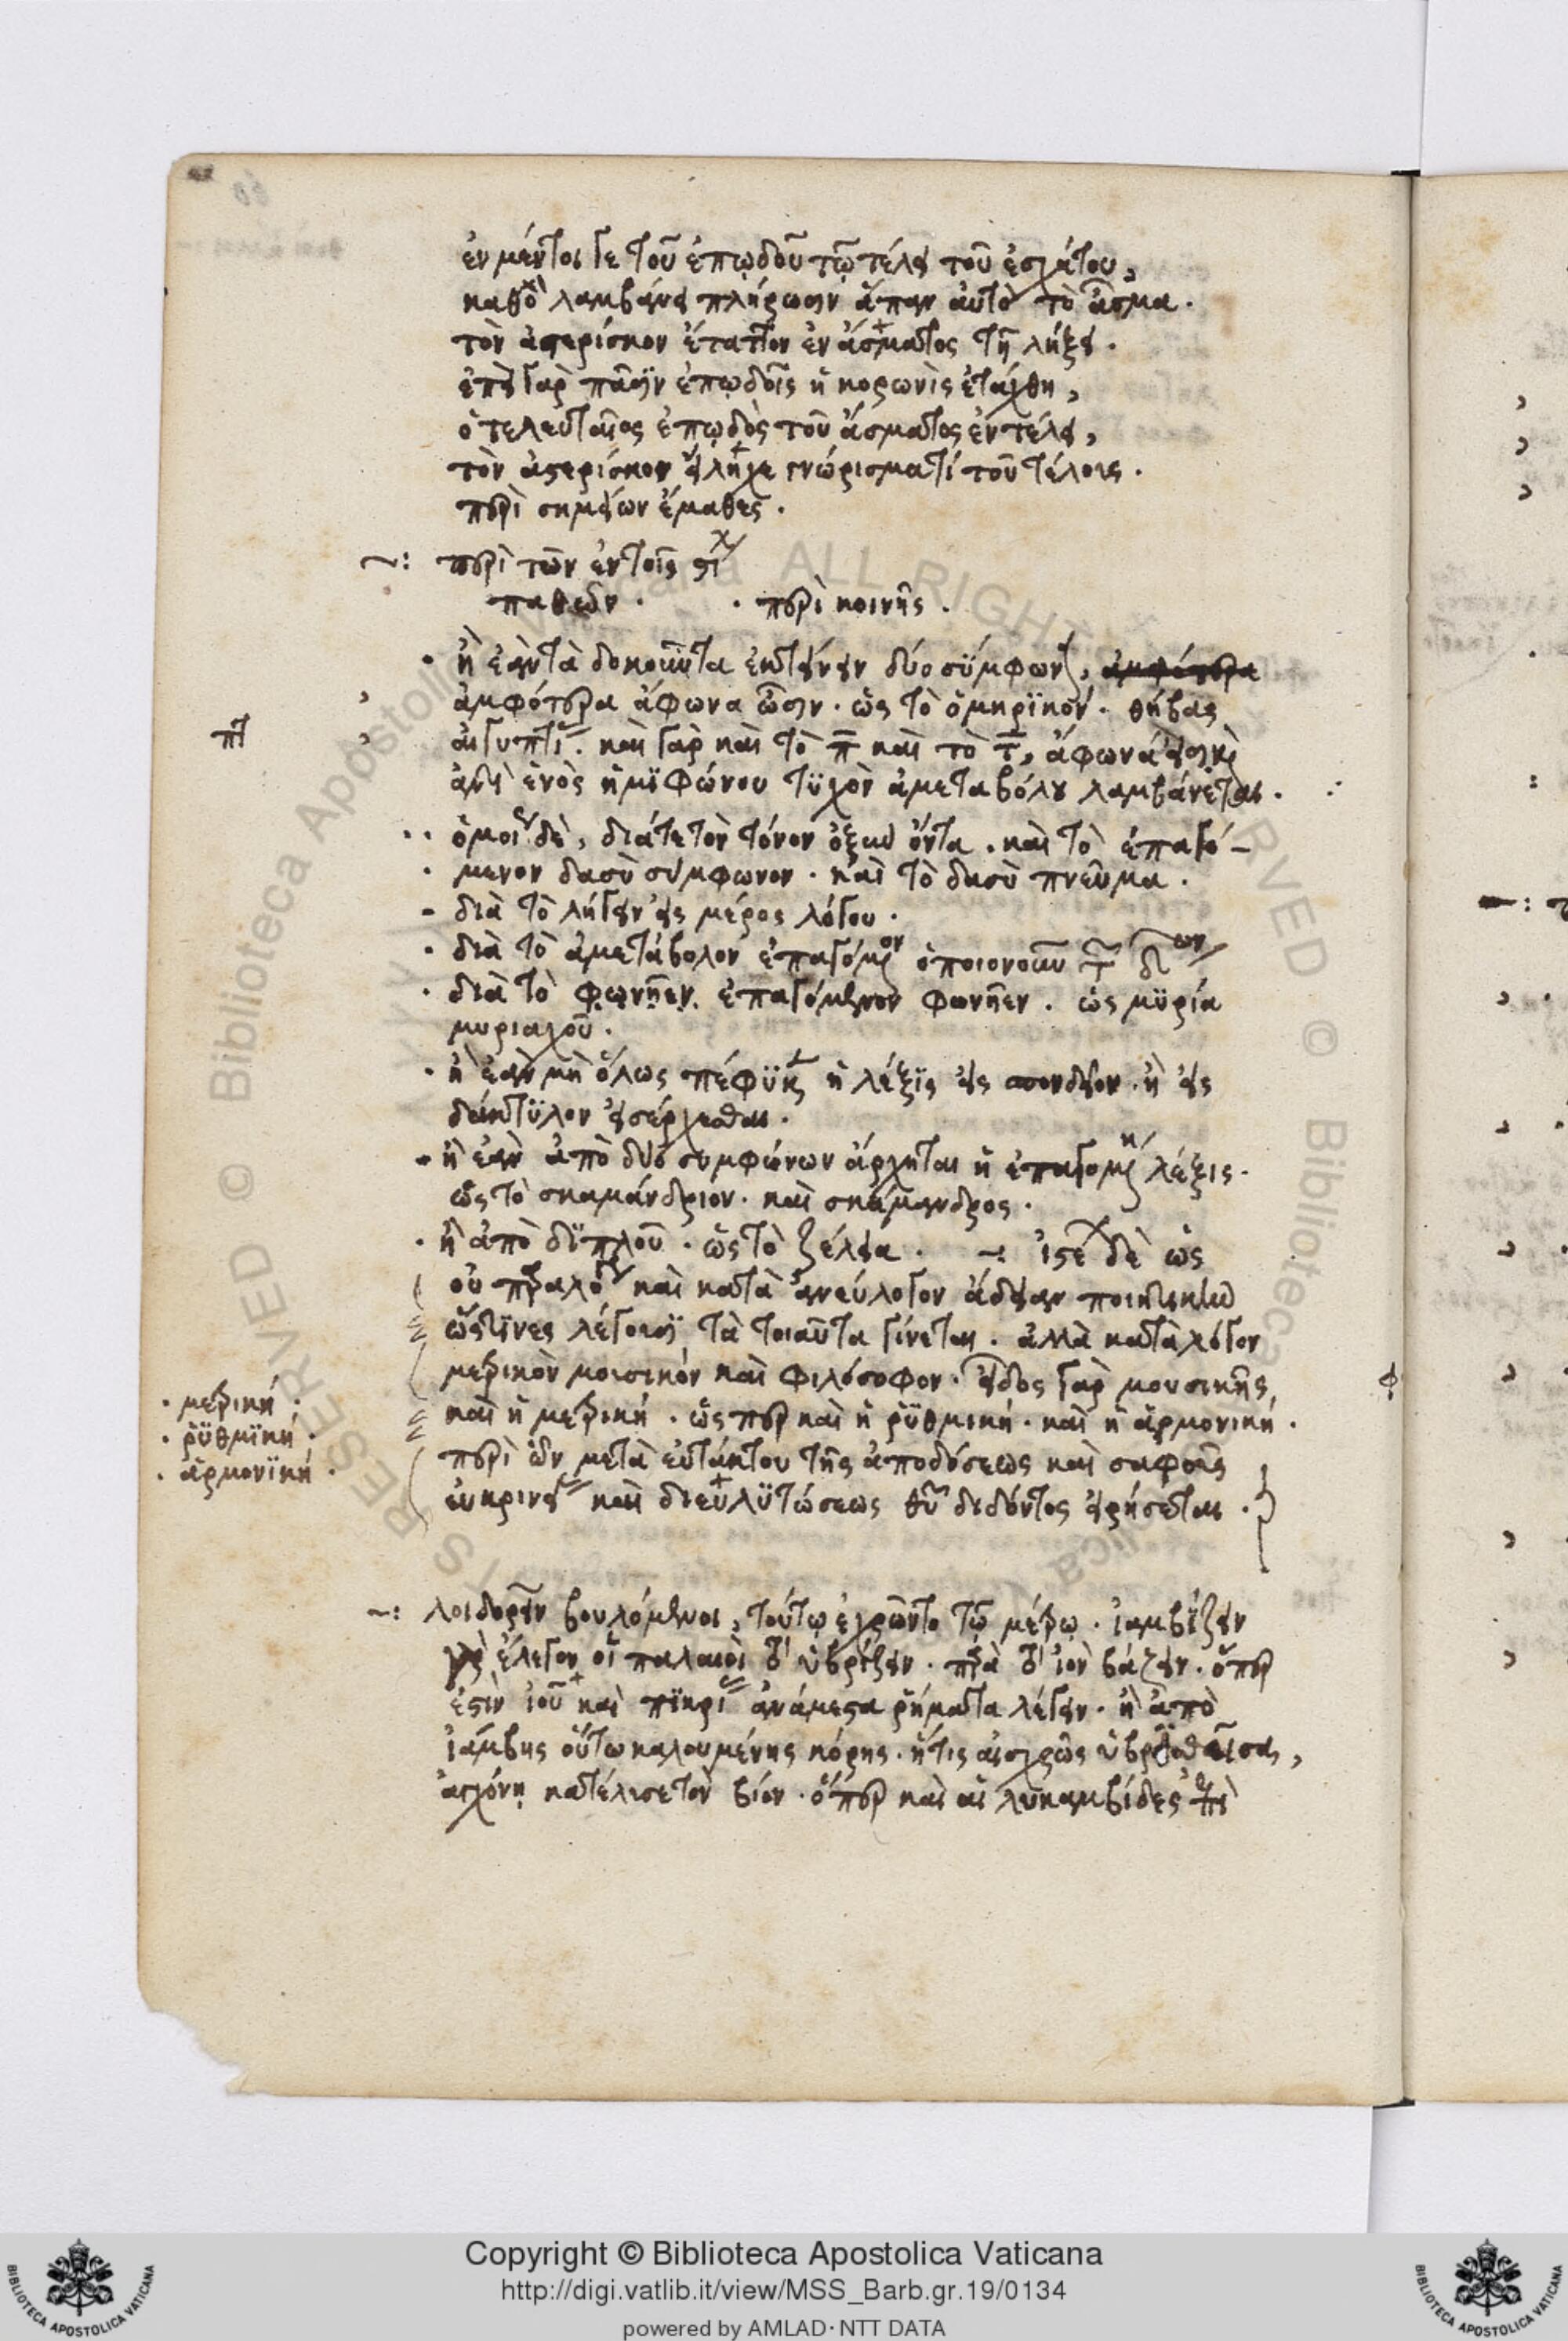 ἐν μέντοι γε τοῦ ἐπῳδοῦ τῷ τέλει τοῦ ἐσχάτου,
καθὸ λαμβάνει πλήρωσιν ἅπαν αὐτὸ τὸ ᾆσμα.
τὸν ἀστερίσκον ἔταττον ἐν ᾄσματος τῇ λήξει.
ἐπεὶ γὰρ πᾶσιν ἐπῳδοῖς ἡ κορωνὶς ἐτάχθη,
ὁ τελευταῖος ἐπῳδὸς τοῦ ᾄσματος ἐν τέλει,
τὸν ἀστερίσκον εἴληχε γνώρισμά τι τοῦ τέλους.
περὶ σημείων ἔμαθες.
~: περὶ τῶν ἐν τοῖς στίχ
παθῶν . . περὶ κοινῆς.
. ἢ ἐὰν τὰ δοκοῦντα ἐκτείνειν δύο σύμφων,
ἀμφότερα ἄφωνα ὦσιν . ὡς τὸ ὁμηρϊκόν . θήβας
πτ
αἰγυπτί. καὶ γὰρ καὶ τὸ π καὶ τὸ τ, ἄφωνά εἰσι καὶ
ἀντὶ ἑνὸς ἡμϊφώνου τϋχὸν ἀμεταβόλου λαμβάνεται.
. . ὁμοί δὲ, διά τε τὸν τόνον ὀξὺν ὄντα . καὶ τὸ ἐπαγό-
. μενον δασὺ σύμφωνον . καὶ τὸ δασὺ πνεῦμα.
- διὰ τὸ λήγειν εἰς μέρος λόγου.
. διὰ τὸ ἀμετάβολον ἐπαγόμον ὁποιονοῦν τ
. διὰ τὸ φωνῆεν ἐπαγόμενον φωνῆεν . ὡς μϋρία
μυριαχοῦ.
. ἢ ἐὰν μὴ ὅλως πέφϋκε ἡ λέξϊς εἰς σπονδεῖον . ἢ εἰς
δάκτϋλον εἰσέρχεσθαι.
. ἢ ἐὰν ἀπὸ δύο συμφώνων ἄρχηται ἡ ἐπαγομένη λέξις.
ὡς τὸ σκαμάνδριον . καὶ σκάμανδρος.
. ἢ ἀπὸ δϊπλοῦ . ὡς τὸ ζέλεια . ~: ἰστέ δὲ ὡς
οὐ παραλόγ καὶ κατὰ ἀνεύλογον ἄδειαν ποιητικὴν
ὥς τϊνες λέγουσϊ τὰ τοιαῦτα γίνεται . ἀλλὰ κατὰ λόγον
μετρικὸν μουσικὸν καὶ φιλόσοφον . εἶδος γὰρ μουσικῆς
. μετρική .
καὶ ἡ μετρική . ὥς περ καὶ ἡ ῥϋθμική . καὶ ἡ ἁρμονική.
. ῥϋθμϊκή .
. ἁρμονϊκή .
περὶ ὧν μετὰ εὐτάκτου τῆς ἀποδόσεως καὶ σαφοῦς
εὐκριν καὶ διευλϋτώσεως θῦ διδόντος εἰρήσεται .
~: λοιδορεῖν βουλόμενοι, τούτῳ ἐχρῶντο τῷ μέτρῳ . ἰαμβίζειν
γὰρ ἔλεγον οἱ παλαιοὶ τὸ ὑβρίζειν . παρὰ τὸ ἰὸν βάζειν . ὅπερ
ἐστὶν ἰοῦ καὶ πϊκρί ἀνάμεστα ῥήματα λέγειν . ἢ ἀπὸ
ἰάμβης οὕτω καλουμένης κόρης . ἥτις αἰσχρῶς ὑβρϊσθεῖσα,
ἀγχόνῃ κατέλυσε τὸν βίον . ὅπερ καὶ αἱ λυκαμβίδες ἐπὶ
Copyright © Biblioteca Apostolica Vaticana
http://digi.vatlib.it/view/MSS_Barb.gr.19/0134
powered by AMLAD·NTT DATA